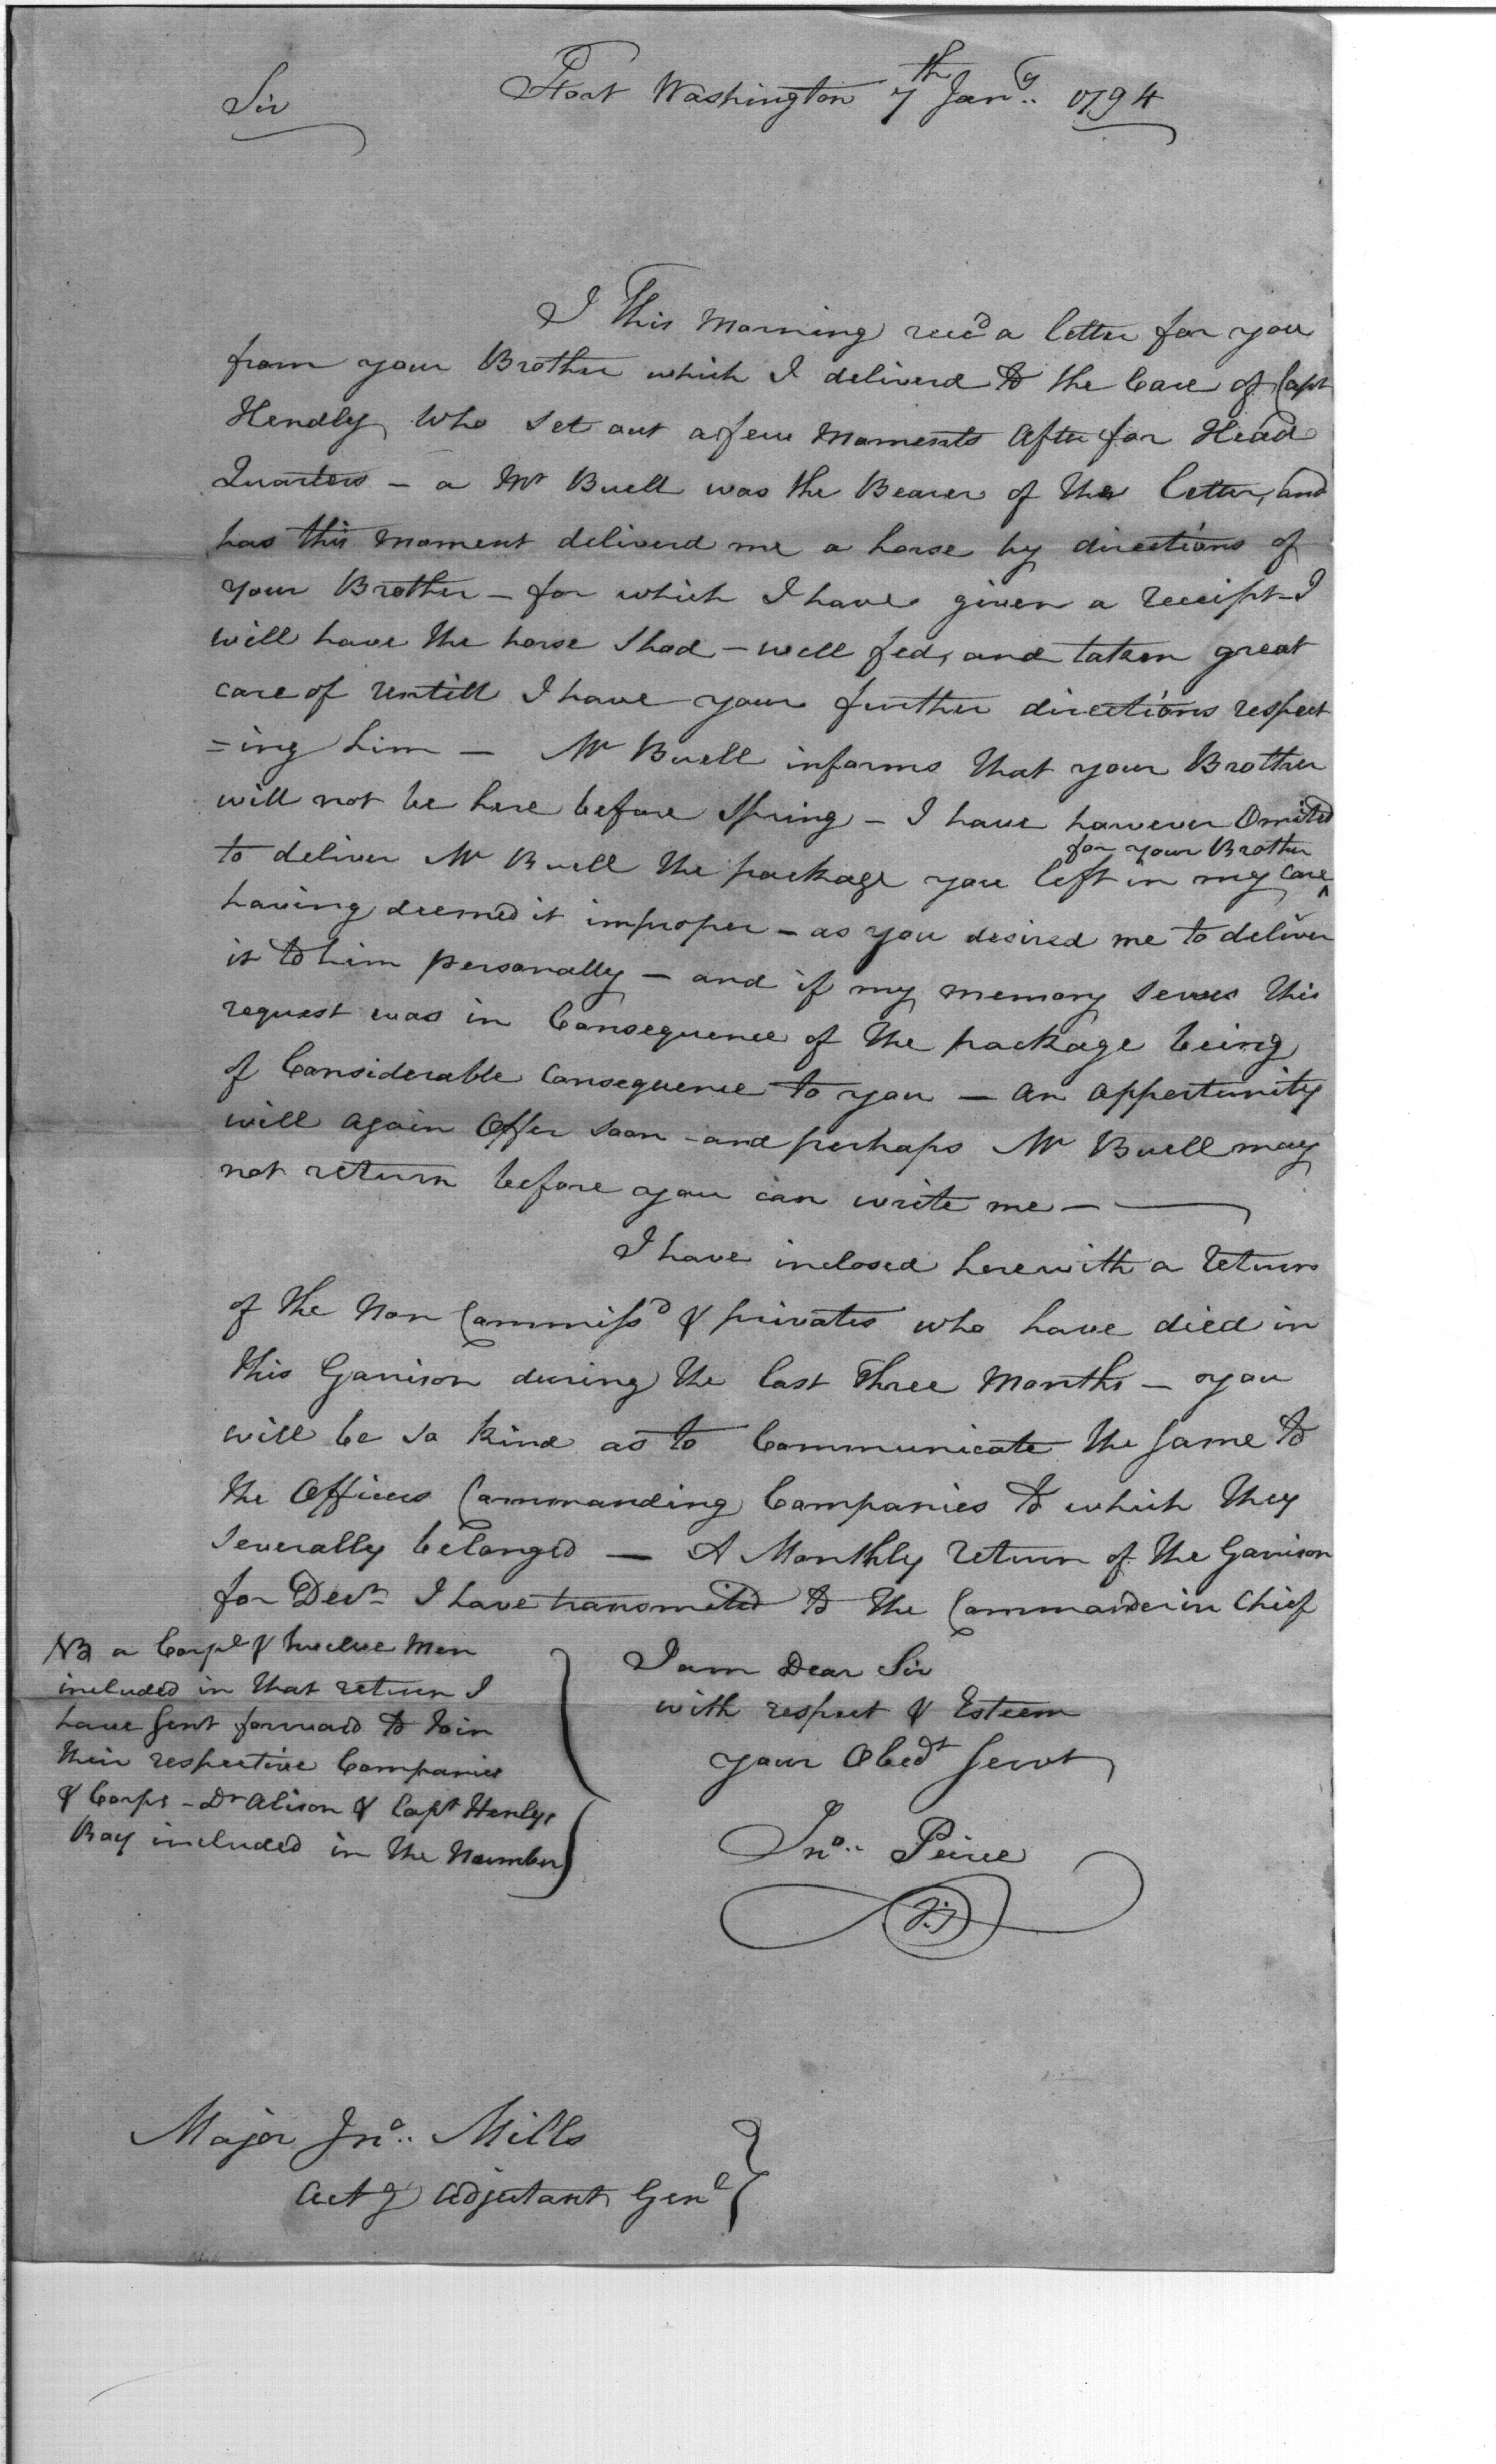 Sir
Fort Washington 7th Jany. 1794
I This Morning recd a letter for you
from your Brother which I deliverd to the Care of Capt
Hendly, Who set out a few Moments After for Head
Quarters - a Mr Buell was the Bearer of the letter, and
has this moment deliverd me a horse by directions of
your Brother - for which I have given a receipt - I
will have the horse Shod - well fed, and taken great
care of untill I have your further directions respect
=ing him - Mr Buell informs that your Brother
will not be here before Spring - I have however Omitted
to deliver Mr Buell the package you left in my Care ^ for your Brother
having deemed it improper - as you desired me to deliver
it to him personally - and if my memory serves this
request was in Consequence of the package being
of Considerable Consequence to you - an oppertunity
will again Offer soon - and perhaps Mr Buell may
not return before you can write me -
I have inclosed herewith a return
of the Non Commissd & privates who have died in
this Garrison during the last Three Months - you
will be so kind as to Communicate the same to
the Officers Commanding Companies to which they
severally belonged - A Monthly return of the Garrison
for Decr I have transmitted to the Commander in Chief
NB a Corpl & twelve Men
included in that return I
have sent forward to Join
their respective Companies
& Corps - Dr Alison & Capt Henlys
Boy included in the Number
I am Dear Sir
with respect & Esteem
your Obedt Servt
Jno. Peirce
Major Jno. Mills
Actg Adjutant Genl